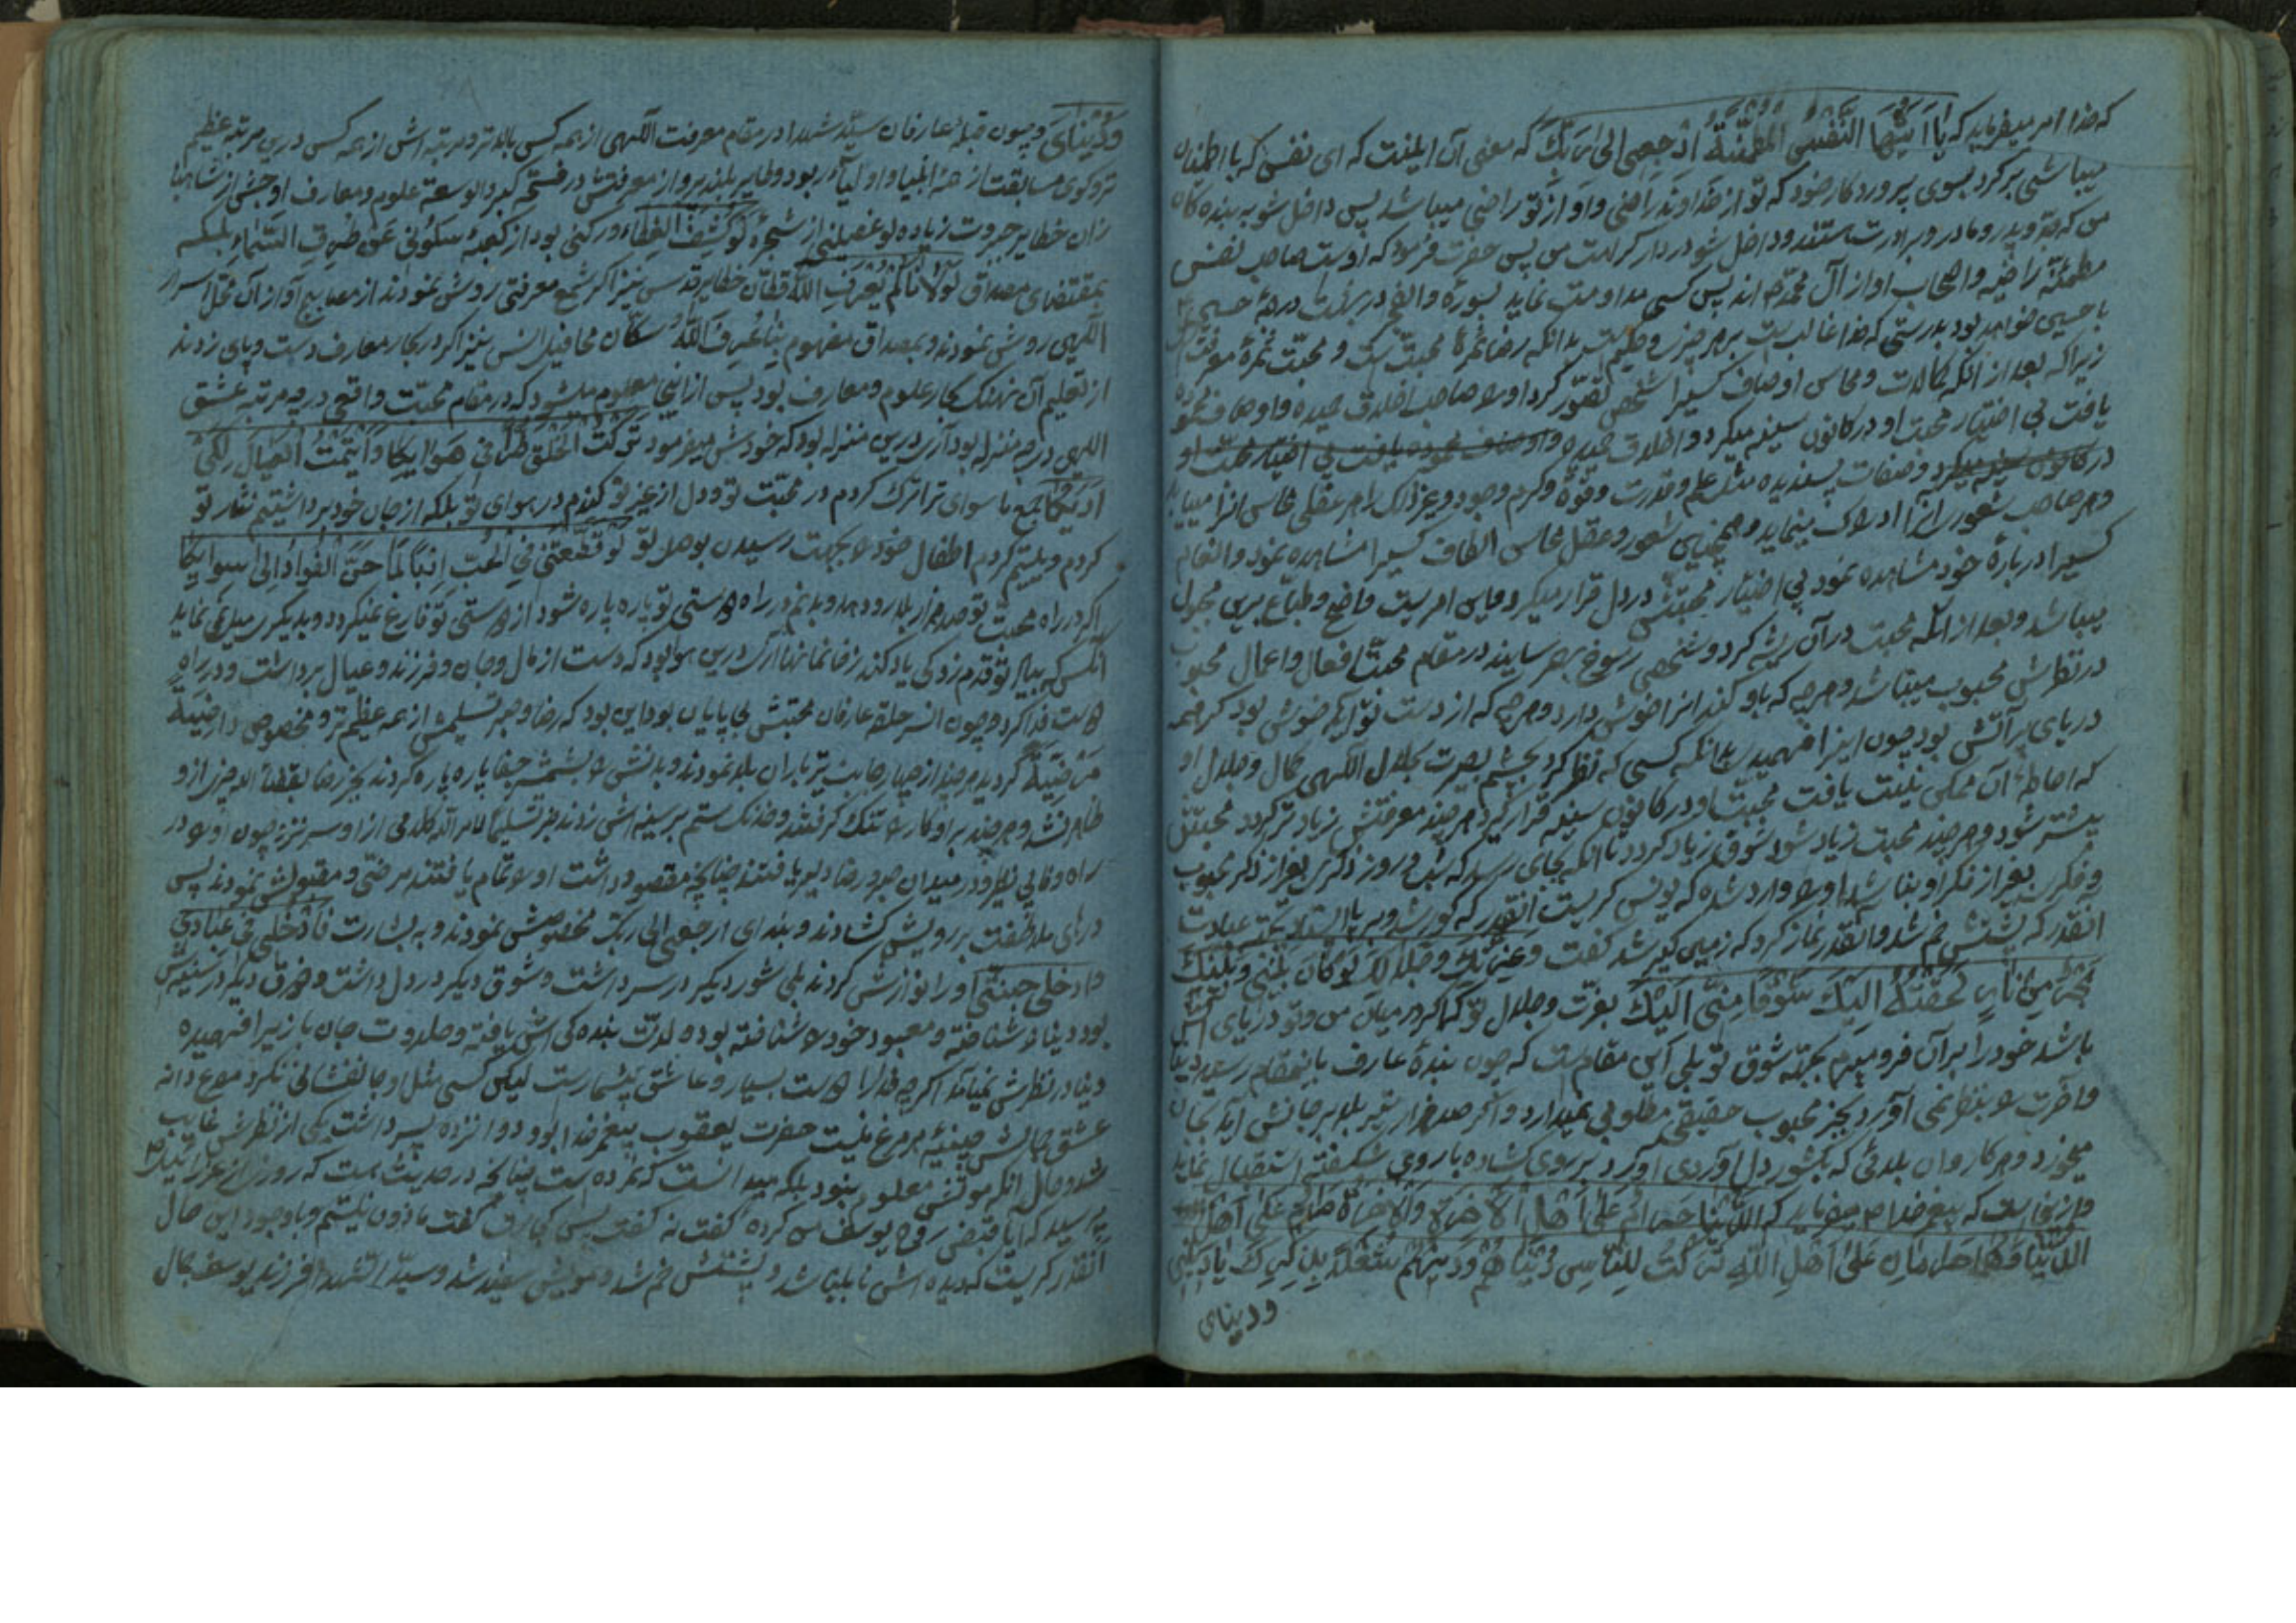 که خدا امر میفرماید که یا اَیَّتُهَا النَّفْسُ الْمُطْمَئِنَّةُ ارْجِعِی اِلی رَبِّکَ که معنی آن اینست که ای نفسی که با اطمینان
میباشی برگرد بسوی پروردگار خود که تو از خداوند راضی و او از تو راضی میباشد پس داخل شو به بندگان
من که جد و پدر و مادر و برادرت هستند و داخل شو در دار کرامت من پس حضرت فرمود که اوست صاحب نفس
مطمئنه راضیه و اصحاب او از آل محمدند پس کسی مداومت نماید بسوره والفجر در بهشت در درجه حسین
با حسین خواهد بود بدرستی که خدا غالب است بر هر چیز و حکیم است بدانکه رضا ثمره محبت است و محبت ثمره معرفت
زیرا که بعد از آنکه کمالات و محاسن اوصاف کسیرا شخص تصور کرد او را صاحب اخلاق حمیده و اوصاف محموده
یافت بی اختیار محبت او در کانون سینه میگیرد و اخلاق حمیده و اوصاف محموده یافت بی اختیار محبت او
در کانون سینه میگیرد و صفات پسندیده مثل علم و قدرت و قوة و کرم وجود و غیر ذالک را هر عقلی محاسن آنرا مییابد
و هر صاحب شعور آنرا ادراک مینماید و همچنین شعور و عقل محاسن الطاف کسیرا مشاهده نمود و انعام
کسیرا درباره خود مشاهده نمود بی اختیار محبتش در دل قرار میگیرد و این امریست واضح و طباع برین مجبول
میباشد و بعد از آنکه محبت در آن ریشه کرد و شخص رسوخ بهم رسانید در مقام محبت افعال و اعمال محبوب
در نظرش محبوب میباشد و هر چه که باو کند آنرا خوش دارد و هر چه که از دست تو آید خوش بود گر همه
دریای پر آتش بود چون اینرا فهمیدی بدانکه کسی که نظر کرد بچشم بصیرت بجلال الهی کمال و جلال او
که احاطه آن ممکن نیست یافت محبت او در کانون سینه قرار گیرد هر چند معرفتش زیادتر گردد محبتش
بیشتر شود و هر چند محبت زیاد شود شوق زیاد گردد تا آنکه بجای رسد که شب و روز ذکری بغیر از ذکر محبوب
و فکری بغیر از فکر او نباشد او را وارد شده که یونس گریست آنقدر که کور شد و به پا ایستاد بجهة عبادت
آنقدر که پشتش خم شد و آنقدر نماز کرد که زمین گیر شد گفت وَ عِزَّتِکَ وَ جَلالِکَ لَوْ کانَ بَیْنی وَ بَیْنَکَ
بَحْرٌ مِنْ نارٍ لَخُضْتُهُ اِلَیْکَ شَوْقًا مِنّی اِلَیْکَ بعزت و جلال تو که اگر در میان من و تو دریای آتش
باشد خود را بر آن فرو میبرم بجهة شوق تو بلی این مقامیست که چون بنده عارف باینمقام رسید دنیا
و آخرت را بنظر نمی آورد و بجز محبوب حقیقی مطلوبی نمیدارد و اگر صد هزار تیر بلا بر جانش آید بجان
میخرد و هر کاروان بلائی که بکشور دل آوردی آورد بر روی گشاده با روی شکفته استقبال نماید
و ازینجاست که پیغمبر خدا ص میفرماید که الدُّنْیا حَرامٌ عَلی اَهْلِ الْآخِرَةِ وَ الْآخِرَةُ حَرامٌ عَلی اَهْلِ
الدُّنْیا وَ هُما حَرامانِ عَلی اَهْلِ اللّهِ تَرَکْتُ لِلنّاسِ دُنْیاهُمْ وَ دینَهُمْ شُغْلًا بِذِکْرِکَ یا دینی
و دنیای
وَ دُنْیایَ و چون قبله عارفان سید شهدا در مقام معرفت الهی از همه کس بالاتر و مرتبه اش از همه کس درین مرتبه عظیم
تر و گوی مسابقت از همه انبیا و اولیاء ربود و طایر بلند پرواز معرفتش در قسم گیردار وسعة علوم و معارف او
زان خطایر جبروت زیاده لو غصینی از شجره لَوْ کُشِفَ الْغِطاءُ و رکنی بود از کعبه سَلُونی عَنْ طُرُقِ السَّماءِ بلکه
بمقتضای مصداق لَوْلانا لَمْ یُعْرَفِ اللّهُ قطان خطایر قدس نیز اگر شمع معرفتی روشن نمودند از مصابیح آواز آن محل اسرار
الهی روشن نمودند و بمصداق مفهوم بِنا عُرِفَ اللّهُ سکان محافل انس نیز اگر در بحار معارف دست و پای زدند
از تعلیم آن نهنگ بحار علوم و معارف بود پس از اینجا معلوم میشود که در مقام محبت واقعی در چه مرتبه عشق
الهی در چه منزله بود آری درین منزله بود که خودش میفرمود تَرَکْتُ الْخَلْقَ طُرًّا فی هَواکا وَ اَیْتَمْتُ الْعِیالَ لِکَیْ
اَراکا جمیع ما سوای ترا ترک کردم در محبت تو و دل از غیر تو کندم در هوای تو بلکه از جان خود برداشتم نثار تو
کردم و یتیم کردم اطفال خود را بجهت رسیدن بوصل تو لَوْ قَطَّعْتَنی فِی الْحُبِّ اِرْبًا لَما حَنَّ الْفُؤادُ اِلی سِواکا
اگر در راه محبت تو صد هزار بلا رو دهد و بدنم در راه دوستی تو پاره پاره شود از دوستی تو فارغ نمیگردد و بدیگری میل نمی نماید
آنکس که بیاد تو قدم زد کی یاد کند ز خانمانها آری درین هوا بود که دست از مال و جان و فرزند و عیال برداشت و در راه
دوست فدا کرد و چون آن سر حلقه عارفان محبتش بی پایان بود این بود که رضا و صبر و تسلیمش از همه عظیم تر و مخصوص راضِیَةً
مَرْضِیَّةً گردید هر چند از چهار جانب تیر باران بلا نمودند و بدنش را بشمشیر جفا پاره پاره کردند بجز رضا بقضاء اله چیزی ازو
ظاهر نشد و هر چند بر او کار را تنگ گرفتند و خدنگ ستم بر سینه اش زدند جز تسلیما لامر الله کلامی از او سر نزد چون او را در
راه وفا بی نظیر و در میدان صبر و رضا دلیر یافتند چنانچه مقصود داشت او را تمام یافتند مرضی و مقبولش نمودند پس
درهای ملاطفت بر رویش گشادند و بندای ارجعی الی ربک مخصوصش نمودند و به بشارت فَادْخُلی فی عِبادی
وَ ادْخُلی جَنَّتی او را نوازش کردند بلی شور دیگر در سر داشت و شوق دیگر در دل داشت و ذوق دیگر در سینه اش
بود دنیا را شناخته و معبود خود را شناخته بود و لذت بندگی اش یافته و حلاوت جان بازیرا فهمیده
دنیا در نظرش نمیآمد اگر چه خدا را دوست بسیار و عاشق بیشمارست لیکن کسی مثل او جانفشانی نکرد مرغ دانه
عشق چالش چینیه هر مرغ نیست حضرت یعقوب پیغمبر خدا بود و دوانزده پسر داشت یکی از نظرش غایب
شد و حال آنکه موتش معلوم نبود بلکه میدانست که نمرده است چنانچه در حدیث است که روزی از عزرائیل
پرسید که آیا قبض روح یوسف من کرده گفت نه گفت پس کجاست گفت ماذون نیستم و با وجود این حال
آنقدر گریست که دیده اش نابینا شد و پشتش خم شد و مویش سفید شد و سید الشهدا فرزند یوسف جمال